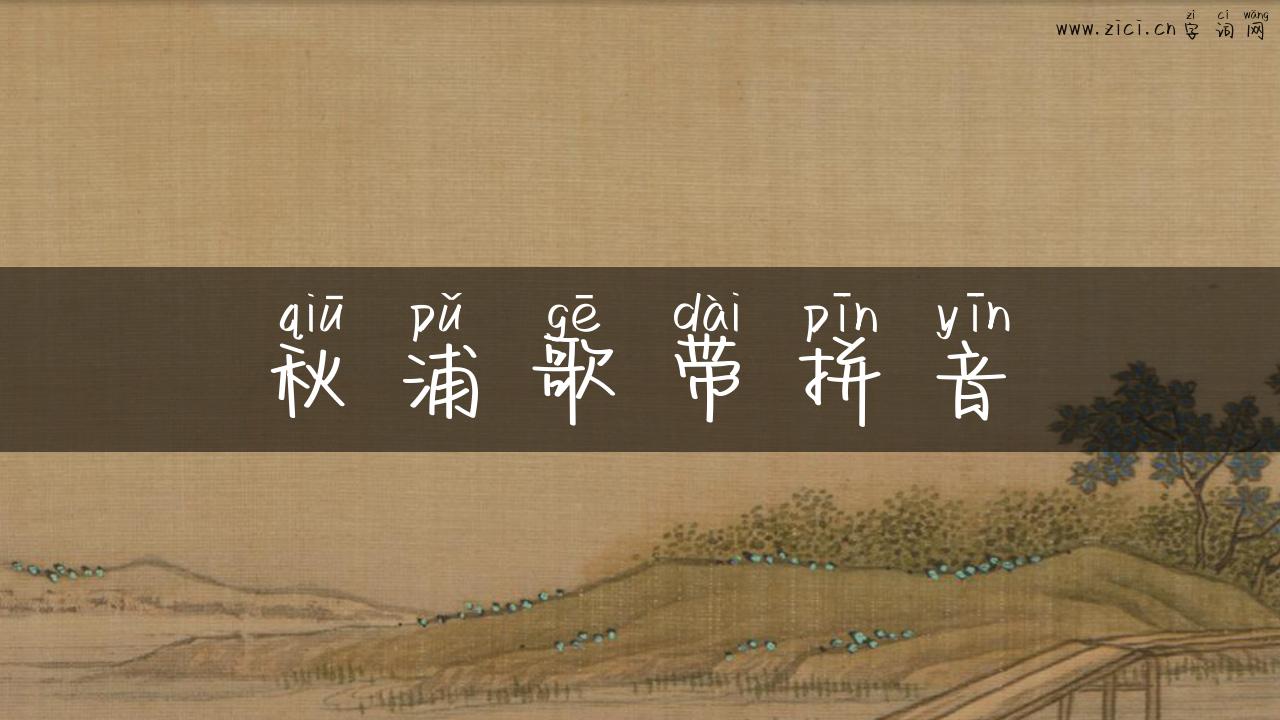 zì cí wǎng
www.zici.cn字词网
qiū pǔ gē dài pīn yīn
秋浦歌带拼音